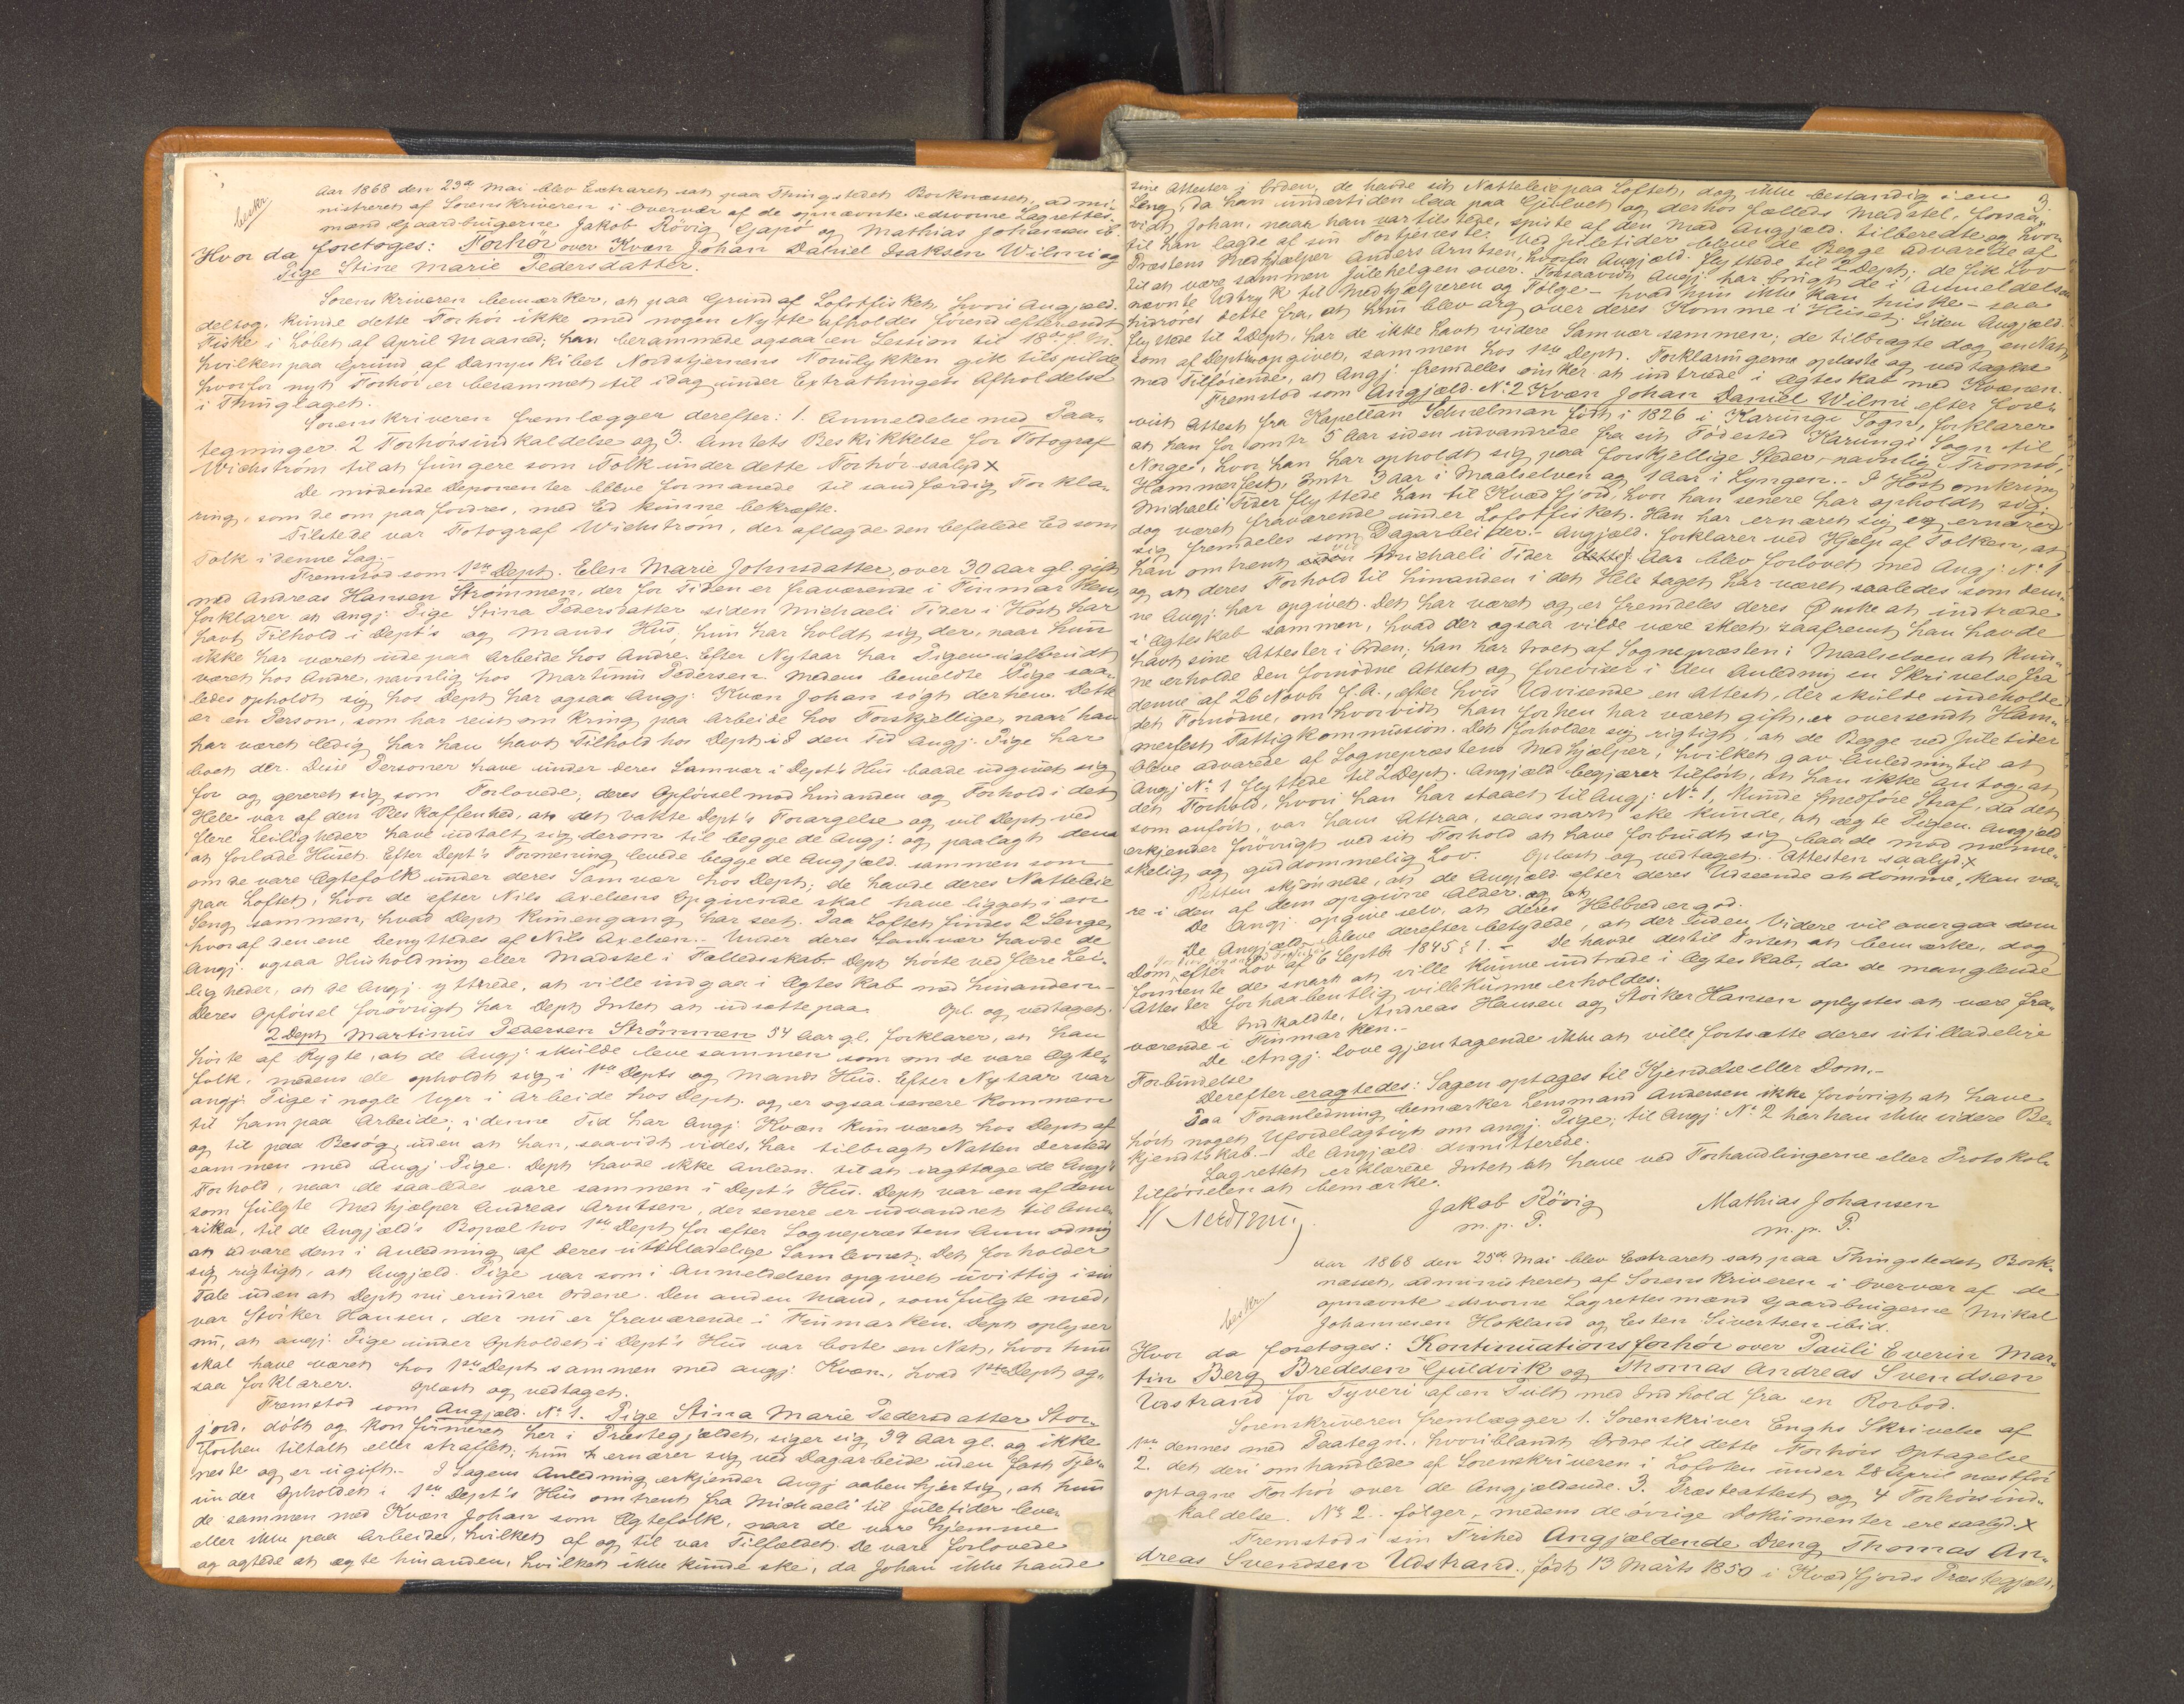 beskr.
Aar 1868 den 23de Mai blev Extraret sat paa Thingstedet Borknæsset, admi-
nistreret af Sorenskriveren i Overvær af de opnævnte edsvorne Lagrettes-
mænd Gaardbrugerne Jakob Rövig Gapö og Mathias Johansen ib.
Hvor da foretoges: Forhör over Kvæn Johan Daniel Isaksen Wilmi og
Pige Stine Marie Pedersdatter.
Sorenskriveren bemærker, at paa Grund af Lofotfisket, hvori Angjæld.
deltog, kunde dette Forhör ikke med nogen Nytte afholdes förend efter endt
Fiske i Löbet af April Maaned; han berammede ogsaa en Session til 18de f. M.
hvilken paa Grund af Dampskibet Nordstjernens Foulykken gik tilspilde,
hvorfor nyt Forhör er berammet til idag under Extrathingets Afholdelse
i Thinglaget.
Sorenskriveren fremlægger derefter: 1. Anmeldelse med Paa-
tegninger 2 Forhörsindkaldelse og 3. Amtets Beskikkelse for Fotograf
Wickström til at fungere som Tolk under dette Forhör saalyd X
De mödende Deponenter bleve formanede til sandfærdig Forkla-
ring, som de om paafordres, med Ed kunne bekræfte.
Tilstede var Fotograf Wickström, der aflagde den befalede Ed som
Tolk i denne Sag.-
Fremstod som 1ste Dept. Elen Marie Johnsdatter, over 30 Aar gl. gift
med Andreas Hansen Strömmen, der for Tiden er fraværende i Finmarken,
forklarer at angj. Pige Stina Pedersdatter siden Michaeli Tider i Höst har
havt Tilhold i Dept's og Mands Hus, hun har holdt sig der, naar hun
ikke har været ude paa Arbeide hos Andre. Efter Nytaar har Pigen uafbrudt
været hos Andre, navnlig hos Martinus Pedersen. Medens bemeldte Pige saa-
ledes opholdt sig hos Dept har ogsaa Angj. Kvæn Johan sögt derhen. Dette
er en Person, som har reist omkring paa Arbeide hos Forskjellige, naar han
har været ledig har han havt Tilhold hos Dept i den Tid angj. Pige har
boet der. Disse Personer have under deres Samvær i Dept's Hus baade udgivet sig
for og gereret sig som Forlovede, deres Opförsel mod hinanden og Forhold i det
Hele var af den Beskaffenhed, at det vakte Dept's Forargelse og vil Dept ved
flere Leiligheder have udtalt sig derom til begge de Angj. og paalagt dem
at forlade Huset. Efter Dept's Formening levede begge de Angjæld. sammen som
om de vare Ægtefolk under deres Samvær hos Dept; de havde deres Natteleie
paa Loftet, hvor de efter Nils Axelsens Opgivende skal have ligget i en
Seng sammen, hvad Dept kun engang har seet. Paa Loftet findes 2 Senge,
hvoraf den ene benyttedes af Nils Axelsen.- Under deres Samvær havde de
Angj. ogsaa Husholdning eller Madstel i Fælledsskab. Dept hörte ved flere Lei-
ligheder, at de Angj. yttrede, at ville indgaa i Ægteskab med hinanden.-
Deres Opförsel forövrigt har Dept Intet at udsætte paa. Opl. og vedtaget.
2 Dept Martinus Pedersen Strömmen 54 Aar gl. forklarer, at han
hörte af Rygte, at de Angj. skulde leve sammen som om de vare Ægte-
folk, medens de opholdt sig i 1ste Depts og Mands Hus. Efter Nytaar var
angj. Pige i nogle Uger i Arbeide hos Dept. og er ogsaa senere kommen
til ham paa Arbeide; i denne Tid har Angj. Kvæn kun været hos Dept af
og til paa Besög, uden at han, saavidt vides, har tilbragt Natten dersteds
sammen med Angj Pige. Dept havde ikke Anledn. til at iagttage de Angj's
Forhold, naar de saaledes vare sammen i Dept's Hus. Dept var en af dem
som fulgte Medhjælper Andreas Arntsen, der senere er udvandret til Ame-
rika, til de Angjæld's Bopæl hos 1ste Dept for efter Sognepræstens Anmodning
at advare dem i Anledning af deres utilladelige Samlevnet. Det forholder
sig rigtigt, at Angjæld. Pige var som i Anmeldelsen opgivet uvittig i sin
Tale uden at Dept nu erindrer Ordene. Den anden Mand, som fulgte med,
var Störker Hansen, der nu er fraværende i Finmarken. Dept oplyser
nu, at angj. Pige under Opholdet i Dept's Hus var borte en Nat, hvor hun
skal have været hos 1ste Dept sammen med angj. Kvæn, hvad 1ste Dept og-
saa forklarer. Oplæst og vedtaget.
Fremstod som Angjæld. No 1. Pige Stina Marie Pedersdatter Stor-
jord, döbt og konfirmeret her i Præstegjældet, siger sig 39 Aar gl. og ikke
forhen tiltalt eller straffet; hun ernærer sig ved Dagarbeide uden fast Tje-
neste og er ugift.- I Sagens Anledning erkjender Angj aabenhjertig, at hun
under Opholdet i 1ste Dept's Hus omtrent fra Michaeli til Juletider leve-
de sammen med Kvæn Johan som Ægtefolk, naar de vare hjemme
eller ikke paa Arbeide, hvilket af og til var Tilfældet. De vare forlovede
og agtede at ægte hinanden, hvilket ikke kunde ske, da Johan ikke havde
3.
sine Attester i Orden; de havde sit Natteleie paa Loftet, dog ikke bestandig i en
Seng, da han undertiden laa paa Gulvet og derhos fælleds Madstel, forsaa-
vidt Johan, naar han var tilstede, spiste af den Mad Angjæld. tilberedte og hvor-
til han lagde af sin Fortjeneste. Ved Juletider bleve de Begge advarede af
Præstens Medhjælper Anders Arntsen, hvorfor Angjæld. flyttede til 2 Dept; de fik Lov
til at være sammen Julehelgen over. Forsaavidt Angj. har brugt de i Anmeldelsen
nævnte Udtryk til Medhjælperen og Fölge - hvad hun ikke kan huske - saa
hidrörer dette fra, at hun blev arg over deres Komme i Huset. Siden Angjæld.
flyttede til 2 Dept, har de ikke havt videre Samvær sammen; de tilbragte dog en Nat,
som af Depten opgivet, sammen hos 1ste Dept. Forklaringerne oplæste og vedtaget
med Tilföiende, at Angj. fremdeles önsker at indtræde i Ægteskab med Kvænen.
Fremstod som Angjæld. No 2 Kvæn Johan Daniel Wilmi efter fore-
vist Attest fra Kapellan Schnelman födt i 1826 i Karungi Sogn, forklarer
at han for omtr 5 Aar siden udvandrede fra sit Födested Karungi Sogn til
Norge, hvor han har opholdt sig paa forskjellige Steder, navnlig i Tromsö,
Hammerfest, omtr 3 Aar i Maalselven og 1 Aar i Lyngen.- I Höst omkring
Michaeli Tider flyttede han til Kvædfjord, hvor han senere har opholdt sig,
dog været fraværende under Lofotfisket. Han har ernæret sig og ernærer
sig fremdeles som Dagarbeider.- Angjæld. forklarer ved Hjælp af Tolken, at
han omtrent ved Michaeli Tider f. Aar blev forlovet med Angj. No 1
og at deres Forhold til hinanden i det Hele taget har været saaledes som den-
ne Angj. har opgivet. Det har været og er fremdeles deres Önske at indtræde
i Ægteskab sammen, hvad der ogsaa vilde være skeet, saafremt han havde
havt sine Attester i Orden; han har troet af Sognepræsten i Maalselven at kun-
ne erholde den fornödne Attest og foreviser i den Anledning en Skrivelse fra
denne af 26 Novbr f. A., efter hvis Udvisende en Attest, der skulde indeholde
det Fornödne, om hvorvidt han forhen har været gift, er oversendt Ham-
merfest Fattigkommission. Det forholder sig rigtigt, at de Begge ved Juletider
bleve advarede af Sognepræstens Medhjælper, hvilket gav Anledning til at
Angj No 1 flyttede til 2 Dept. Angjæld begjærer tilfört, at han ikke antog, at
det Forhold, hvori han har staaet til Angj. No 1, kunde medföre Straf, da det
som anfört, var hans Attraa, saasnart ske kunde, at ægte Pigen. Angjæld
erkjender forövrigt ved sit Forhold at have forbrudt sig baade mod menne-
skelig og guddommelig Lov. Oplæst og vedtaget. Attesten saalyd. X
Retten skjönnede, at de Angjæld efter deres Udseende at domme, kan væ-
re i den af dem opgivne Alder.
De Angj. opgive selv, at deres Helbred er god.
De Angjæld. bleve derefter betydede, at der uden Videre vil overgaa dem
Dom, efter Lov af 6 Septbr 1845 § 1.- De havde dertil Intet at bemærke, dog
formente de snart at ville kunne indtræde i Ægteskab, da de manglende
Attester forhaabentlig ville kunne erholdes.
De Indkaldte, Andreas Hansen og Störker Hansen oplystes at være fra-
værende i Finmarken.-
De Angj. love gjentagende ikke at ville fortsætte deres utilladelige
Forbindelse.
Derefter eragtedes: Sagen optages til Kjendelse eller Dom.-
Paa Foranledning bemærker Lensmand Andersen ikke forövrigt at have
hört noget Ufordelagtigt om angj. Pige; til Angj. No 2 har han ikke videre Be-
kjendtskab.- De Angjæld dimitterede.
Lagrettet erklærede Intet at have ved Forhandlingerne eller Protokol-
tilförselen at bemærke.
Jakob Rövig Mathias Johansen
m. p. P. m. p. P.
beskr.
Aar 1868 den 25de Mai blev Extraret sat paa Thingstedet Bork-
næsset, administreret af Sorenskriveren i Overvær af de
opnævnte edsvorne Lagrettesmænd Gaardbrugerne Mikal
Johannesen Hokland og Esten Sivertsen ibid.
Hvor da foretoges: Kontinuationsforhör over Pauli Everin Mar-
tin Berg Bredesen Guldvik og Thomas Andreas Svendsen
Udstrand for Tyveri af en Pult med Indhold fra en Rorbod.
Sorenskriveren fremlægger 1. Sorenskriver Enghs Skrivelse af
1ste dennes med Paategn., hvoriblandt Ordre til dette Forhörs Optagelse
2. det deri omhandlede af Sorenskriveren i Lofoten under 28 April næstfor
optagne Forhör over de Angjældende. 3. Præsteattest og 4 Forhörsind-
kaldelse. No 2 fölger, medens de övrige Dokumenter ere saalyd. X
Fremstod i sin Frihed Angjældende Dreng Thomas An-
dreas Svendsen Udstrand, födt 13 Marts 1850 i Kvædfjords Præstegjæld,